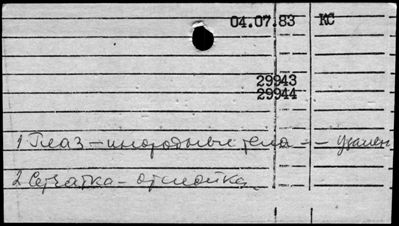 04.07.83 КС
29943
29944
1 Глаз – инородные тела – – удален
2 Сетчатка – отслойка